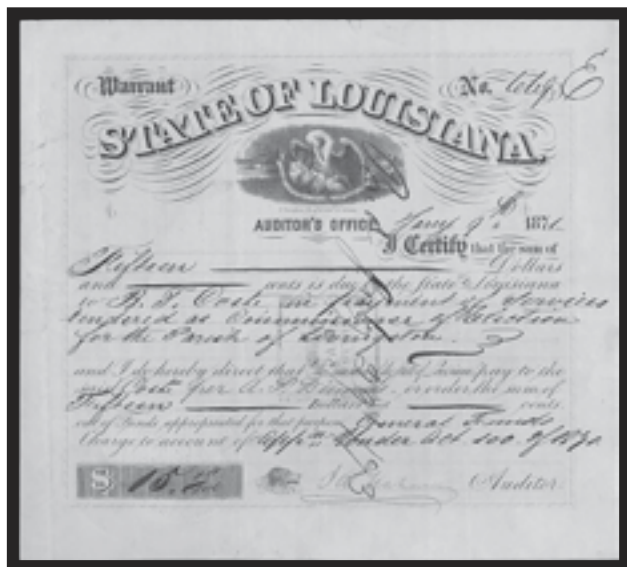 Warrant No. E
STATE OF LOUISIANA.
AUDITOR'S OFFICE, Jany 9th 1871.
I Certify that the sum of
Fifteen Dollars
and cents is due by the State of Louisiana
to B. F. in payment of Services
rendered as Commissioner of Election
for the Parish of Livingston.
and I do hereby direct that the pay to the
said per A. P. or order, the sum of
Fifteen Dollars and cents.
out of Funds appropriated for that purpose General Funds
Charge to account of Appn under Act 100 of 1870
$ 15. Auditor